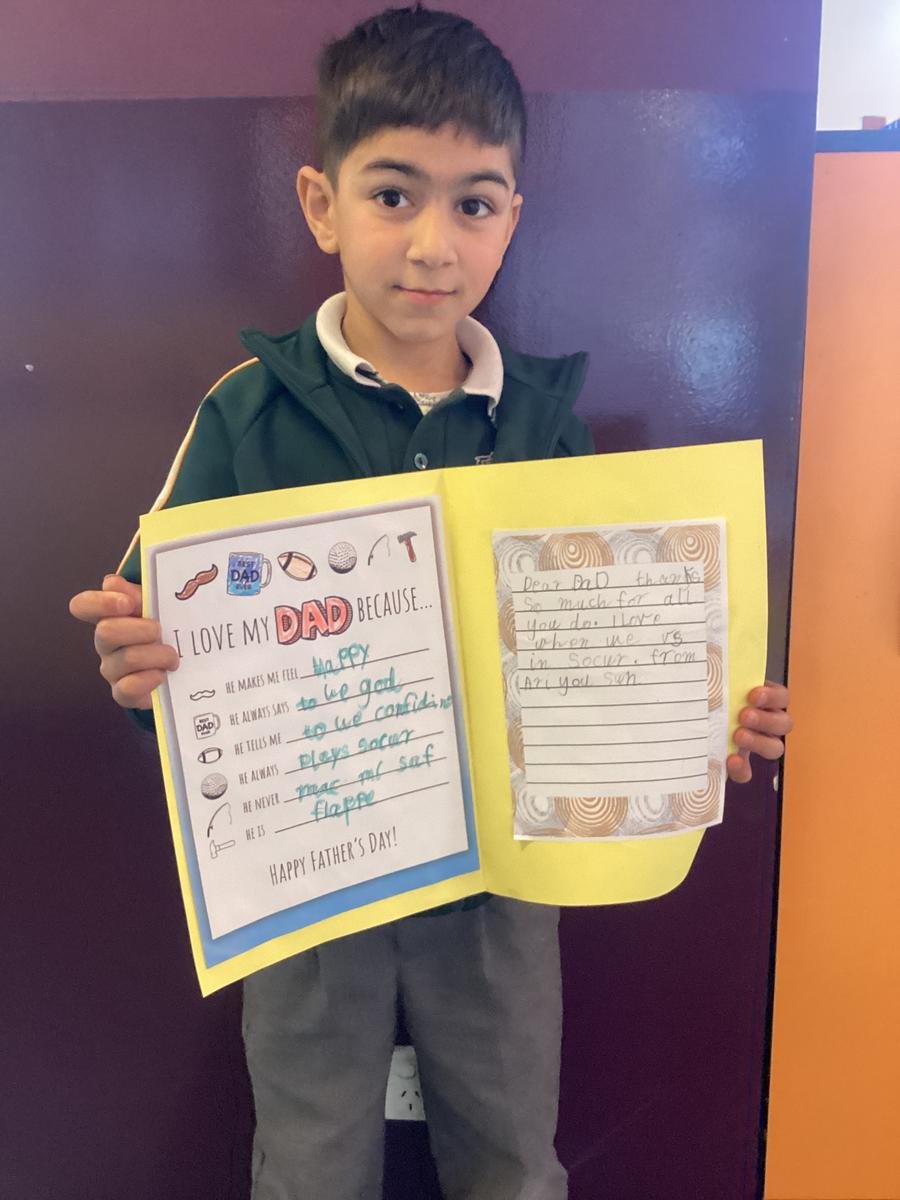 BEST DAD EVER
I LOVE MY DAD BECAUSE...
HE MAKES ME FEEL Happy
BEST DAD EVER
HE ALWAYS SAYS to we god
HE TELLS ME to we confident
HE ALWAYS Plays socur
HE NEVER mac mi saf
HE IS flappe
HAPPY FATHER'S DAY!
Dear DAD thanks
So much for all
you do. I love
when we vs
in Socur. from
Ari you sun